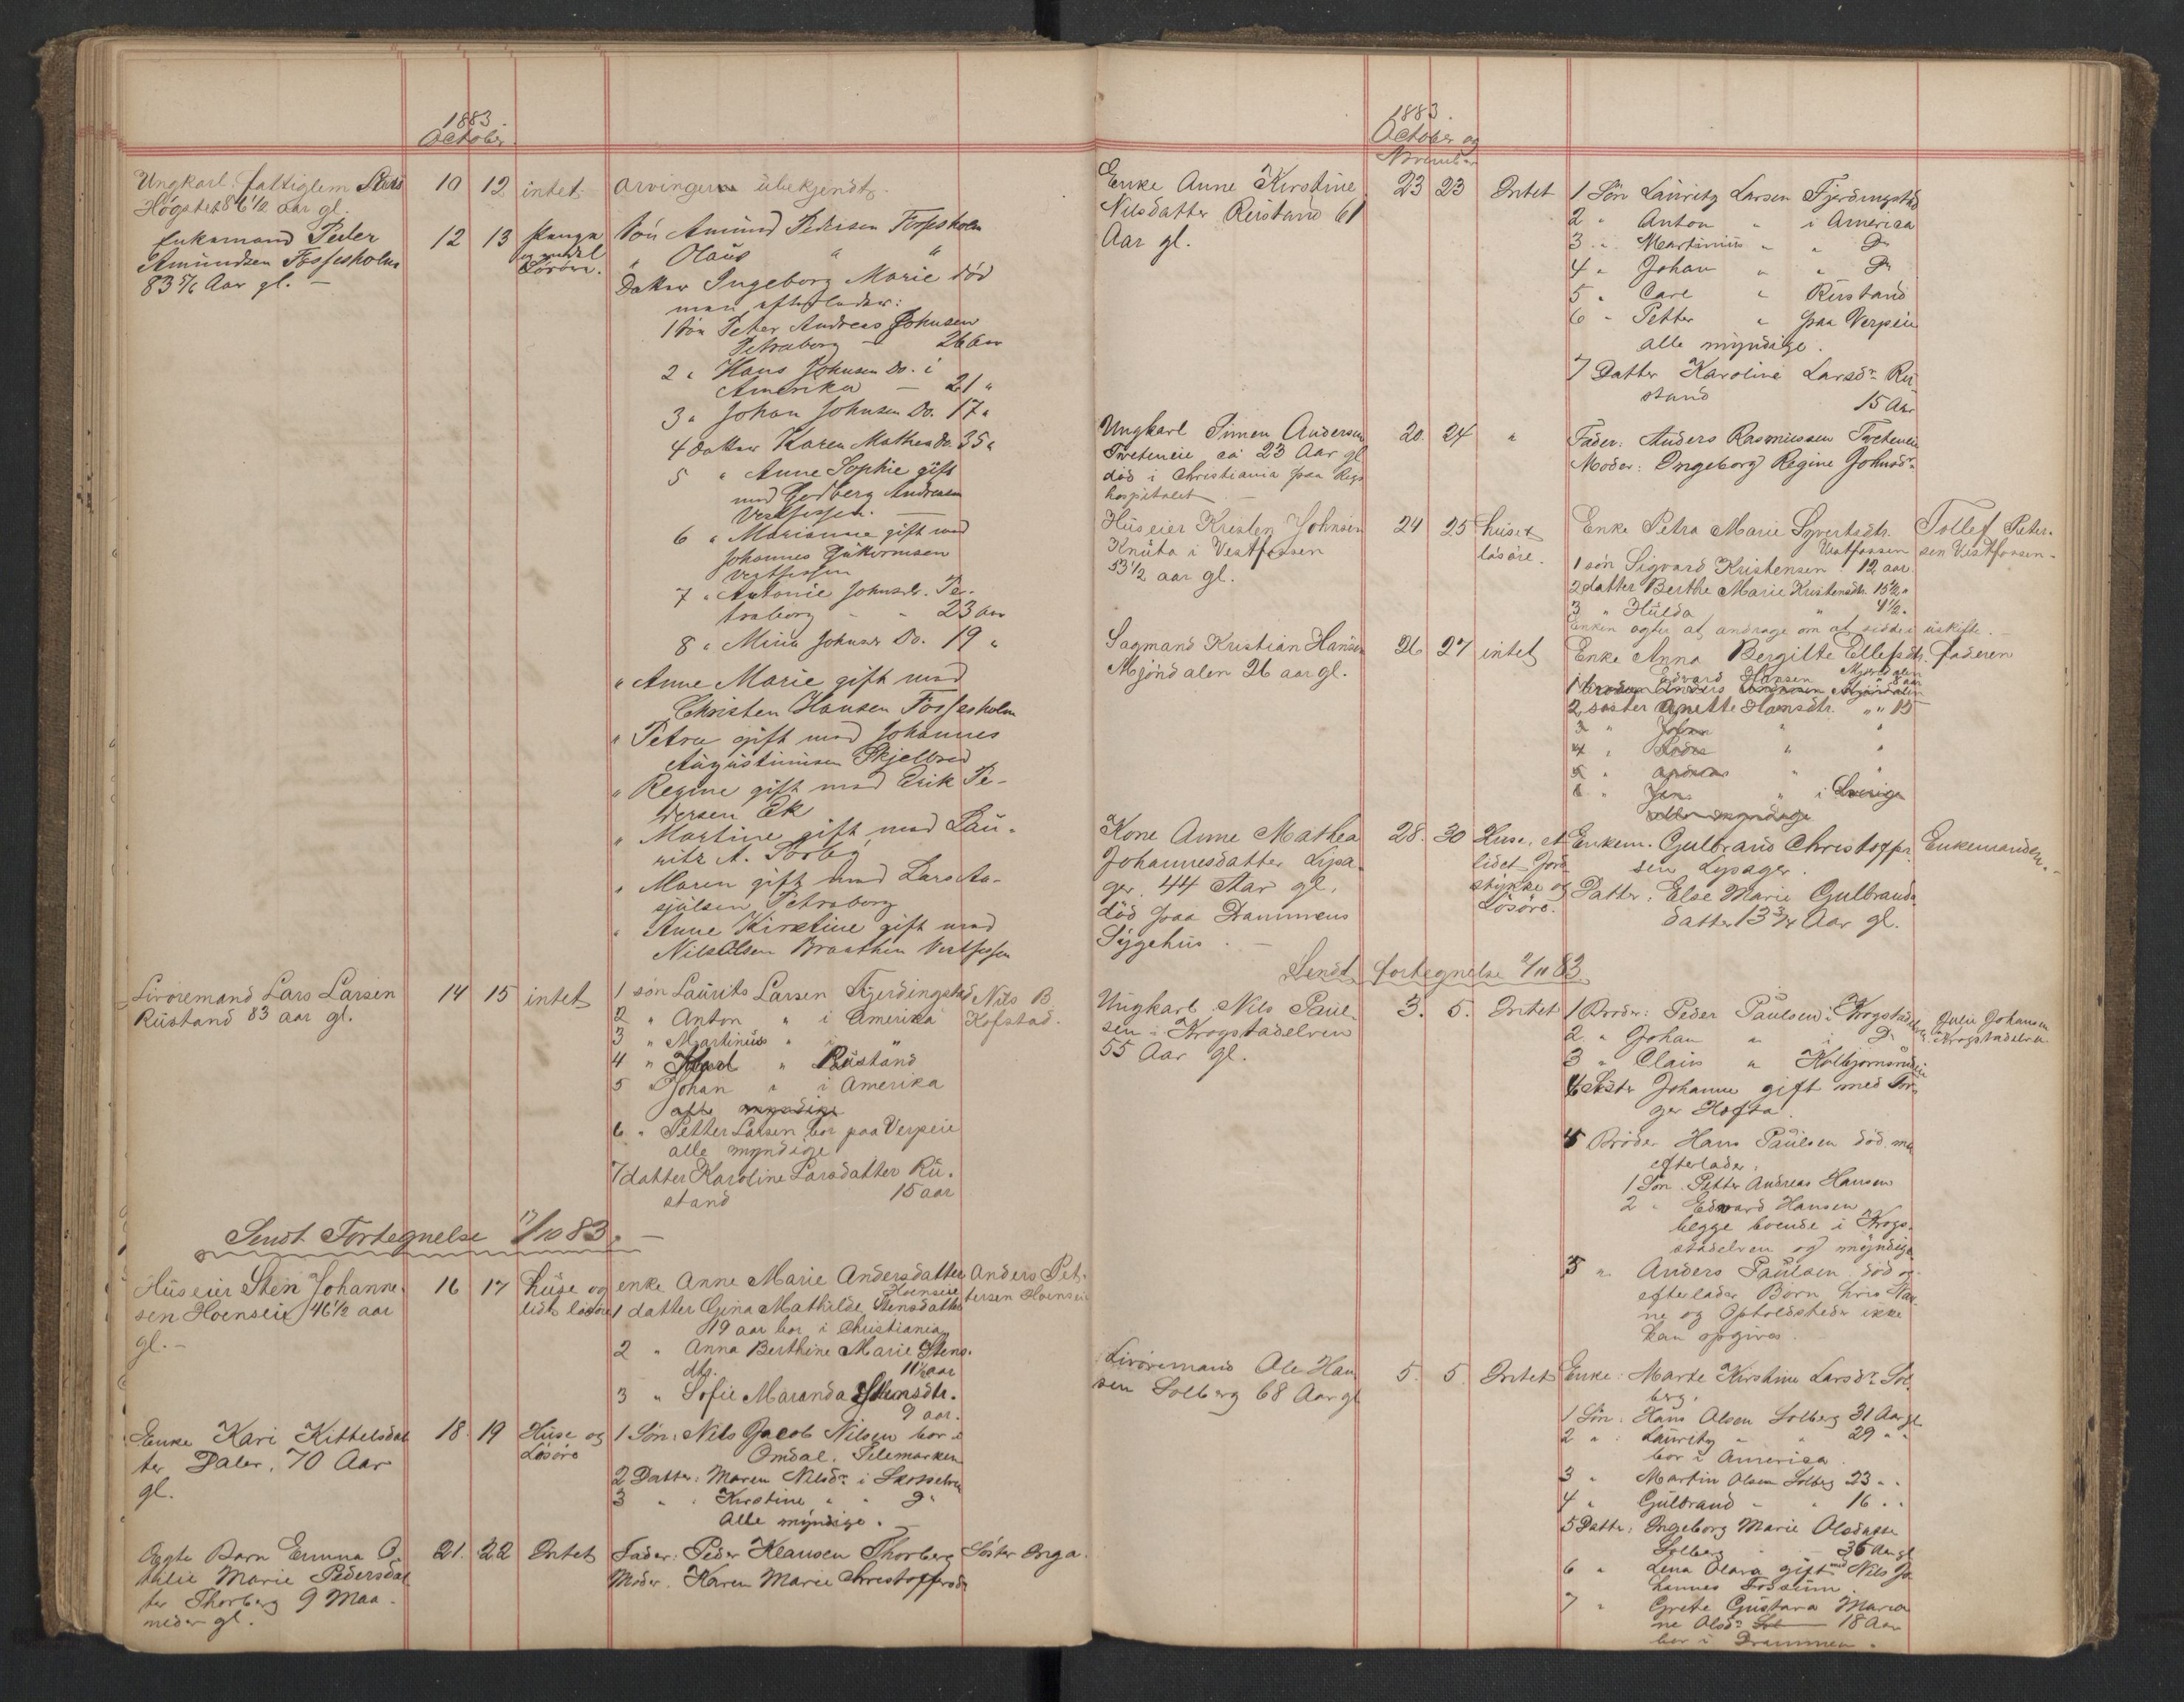 1883.
October.
Ungkarl. fattiglem Steis
Högstet 86 1/2 aar gl.
10 12 intet
arvingerne übekjendt.
Enkemand Peder
Amündsen Fossesholm
83 5/6 Aar gl. —
12 13 Penge
og andel
Lösöre.
Sön Amünd Pedersen Fossesholm
" Olaüs " "
Datter Ingeborg Marie död
men efterlader:
1 Sön Peter Andreas Johnsen
Petraborg — 26 Aar
2 " Hans Johnsen Do. i
Amerika — 21 "
3 " Johan Johnsen Do. 17 "
4 Datter Karen Mathea Do. 35 "
5 " Anne Sophie gift
med Godberg Andresen
Vestfossen. —
6 " Marianne gift med
Johannes
Vestfossen
7 " Antonie Johnsdr. Pe-
traborg - - 23 Aar
8 " Mina Johnsdr Do. 19 "
" Anne Marie gift med
Christen Hansen Fossesholm
" Petra gift med Johannes
Aügüstinüsen Skjelbred
" Regine gift med Erik Pe-
dersen Ek
" Martine gift med Laü-
ritz A. Sörby
" Maren gift med Lars As-
sjülsen Petraborg
" Anne Kirstine gift med
Nils Olsen Braathen Vestfossen
Livöremand Lars Larsen
Rüstand 83 aar gl.
14 15 intet
1 sön Laürits Larsen Fjerdingstad
Nils B.
Kofstad.
2 " Anton " i Amerika
3 " Martiniüs " "
4 " Karl " Rüstand
5 " Johan " i Amerika
alle myndige
6 " Petter Larsen bor paa Verpeie
alle myndige
7 datter Karoline Larsdatter Rü-
stand 15 aar
Sendt Fortegnelse 17/10 83. —
Hüseier Sten Johanne-
sen Hoenseie 46 1/2 aar
gl. -
16 17 Hüse og
lidt lösöre
enke Anne Marie Andersdatter
Hoenseie
Anders Pet-
tersen Hoenseie
1 datter Gina Mathilde Stensdatter
19 aar bor i Christiania
2 " Anna Berthine Marie Stens-
dtr. 11 1/2 aar
3 " Sofie Maranda Stensdtr.
9 aar.
Enke Kari Kittelsdat
ter Daler. 70 Aar
gl.
18. 19 Hüse og
Lösöre
1 Sön: Nils Jacob Nilsen bor i
Omdal. Telemarken
2 Datter: Maren Nilsdr i Skotselven
3 " " Kirstine " " D°
Alle myndige. —
Ægte Barn Emma O
thilie Marie Pedersdat
ter Thorberg 9 Maa-
neder gl.
21. 22 Intet
Fader: Peder Klausen Thorberg
Söster Inga.
Moder. Karen Marie Christoffersdr
1883.
October og
November
Enke Anne Kirstine
Nilsdatter Rüstand 61
Aar gl.
23 23 Intet
1 Sön Laüritz Larsen Fjerdingstad
2 " Anton " i America
3 " Martiniüs " " D°
4 " Johan " " D°
5 " Carl " Rüstand
6 " Petter " paa Verpeie
alle myndige.
7 Datter Karoline Larsdr Rü-
stand 15 Aar
Ungkarl Simen Andersen
Tveteneie ca 23 Aar gl
död i Christiania paa Rigs
hospitalet —
20. 24 "
Fader: Anders Rasmussen Tveteneie
Moder: Ingeborg Regine Johnsdr
Hüseier Kristen Johnsen
Knüta i Vestfossen
53 1/2 aar gl.
24 25 hüset
lösöre.
Enke Petra Marie Syvertsdtr.
Vestfossen
Tollef Peter-
sen Vestfossen -
1 sön Sigvard Kristensen 12 aar
2 datter Berthe Marie Kristensdtr. 15 1/2 "
3 " Hülda " 4 1/2 "
Enken agter at andrage om at sidde i üskifte. —
Sagmand Kristian Hansen
Mjöndalen 26 aar gl.
26 27 intet
Enke Anna Bergitte Ellefsdtr.
Mjöndalen
faderen
1 broder Edvard Hansen " 8 aar
2 söster Anette Hansdtr. " " 15
3 " "
4 " "
5 " Andreas " "
6 " Jens " i Sverige
alle myndige
Kone Anne Mathea
Johannesdatter Lysa
ger. 44 Aar gl.
död paa Drammens
Sygehüs. —
28. 30 Huse, et
lidet Jord
stykke og
Lösöre.
Enkem. Gulbrand Christoffer
sen Lysager.
Enkemanden. -
Datter: Else Marie Gulbrands
datter 13 3/4 Aar gl.
Sendt fortegnelse 2/11 83
Ungkarl Nils Paül-
sen i Krogstadelven
55 Aar gl.
3. 5. Intet
1 Broder: Peder Paülsen i Krogstadelv
Julie Johansen
Krogstadelven
2. " Johan " i D°
3 " Claüs " Kolbjörnsrüdeie
4 Söster Johanne gift med Tor-
ger Hofta.
4 Broder Hans Paülsen död men
efterlader:
1 Sön. Petter Andreas Hansen
2 " Edvard Hansen
begge boende i Krogs-
stadelven og myndige
5 " Anders Paülsen död og
efterlader Börn hvis Nav-
ne og Opholdsteder ikke
kan opgives.
Livöremand Ole Han
sen Solberg 68 Aar gl
5. 5. Intet
Enke: Marte Kirstine Larsdr Sol-
berg.
1 Sön: Hans Olsen Solberg 31 Aar gl
2 " : Laüritz " " 29 " "
bor i America.
3 " Martin Olsen Solberg 23 " "
4 " Gülbrand " " 16 " "
5 Datter: Ingeborg Marie Olsdatter
Solberg - 36 Aar gl
6 " Lena Olava gift med Nils Jo
hannes
7 " Grete Güstava Maria
ne Olsdr Sol 18 Aar
bor i Drammen.